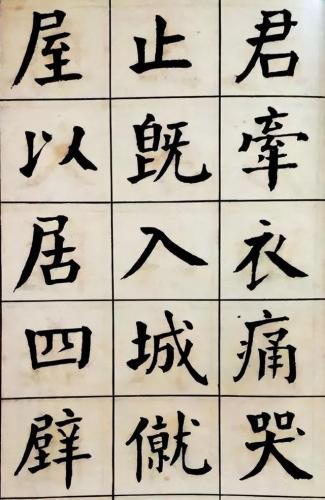 君牽衣痛哭
止既入城僦
屋以居四壁